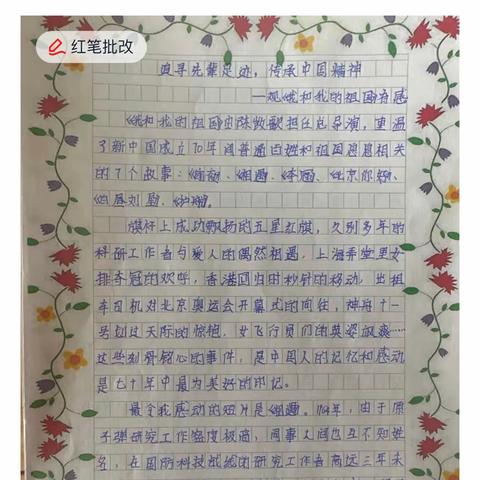 红笔批改
追寻先辈足迹，传承中国精神
—观《我和我的祖国》有感
《我和我的祖国》由陈凯歌担任总导演，重温
了新中国成立70年间普通百姓和祖国息息相关
的7个故事：《前夜》、《相遇》、《夺冠》、《北京你好》、
《白昼流星》、《护航》。
旗杆上成功飘扬的五星红旗，久别多年的
科研工作者与爱人的偶然相遇，上海弄堂里女
排夺冠的欢呼，香港回归的秒针的移动，出租
车司机对北京奥运会开幕式的向往，神舟十一
号划过天际的惊艳，女飞行员们的英姿飒爽……
这些刻骨铭心的事件，是中国人的记忆和感动
是七十年中最为美好的印记。
最令我感动的短片是《相遇》。1964年，由于原
子弹研究工作密度极高，同事人间也互不知姓
名，在国防科技战线的研究工作者高远三年未